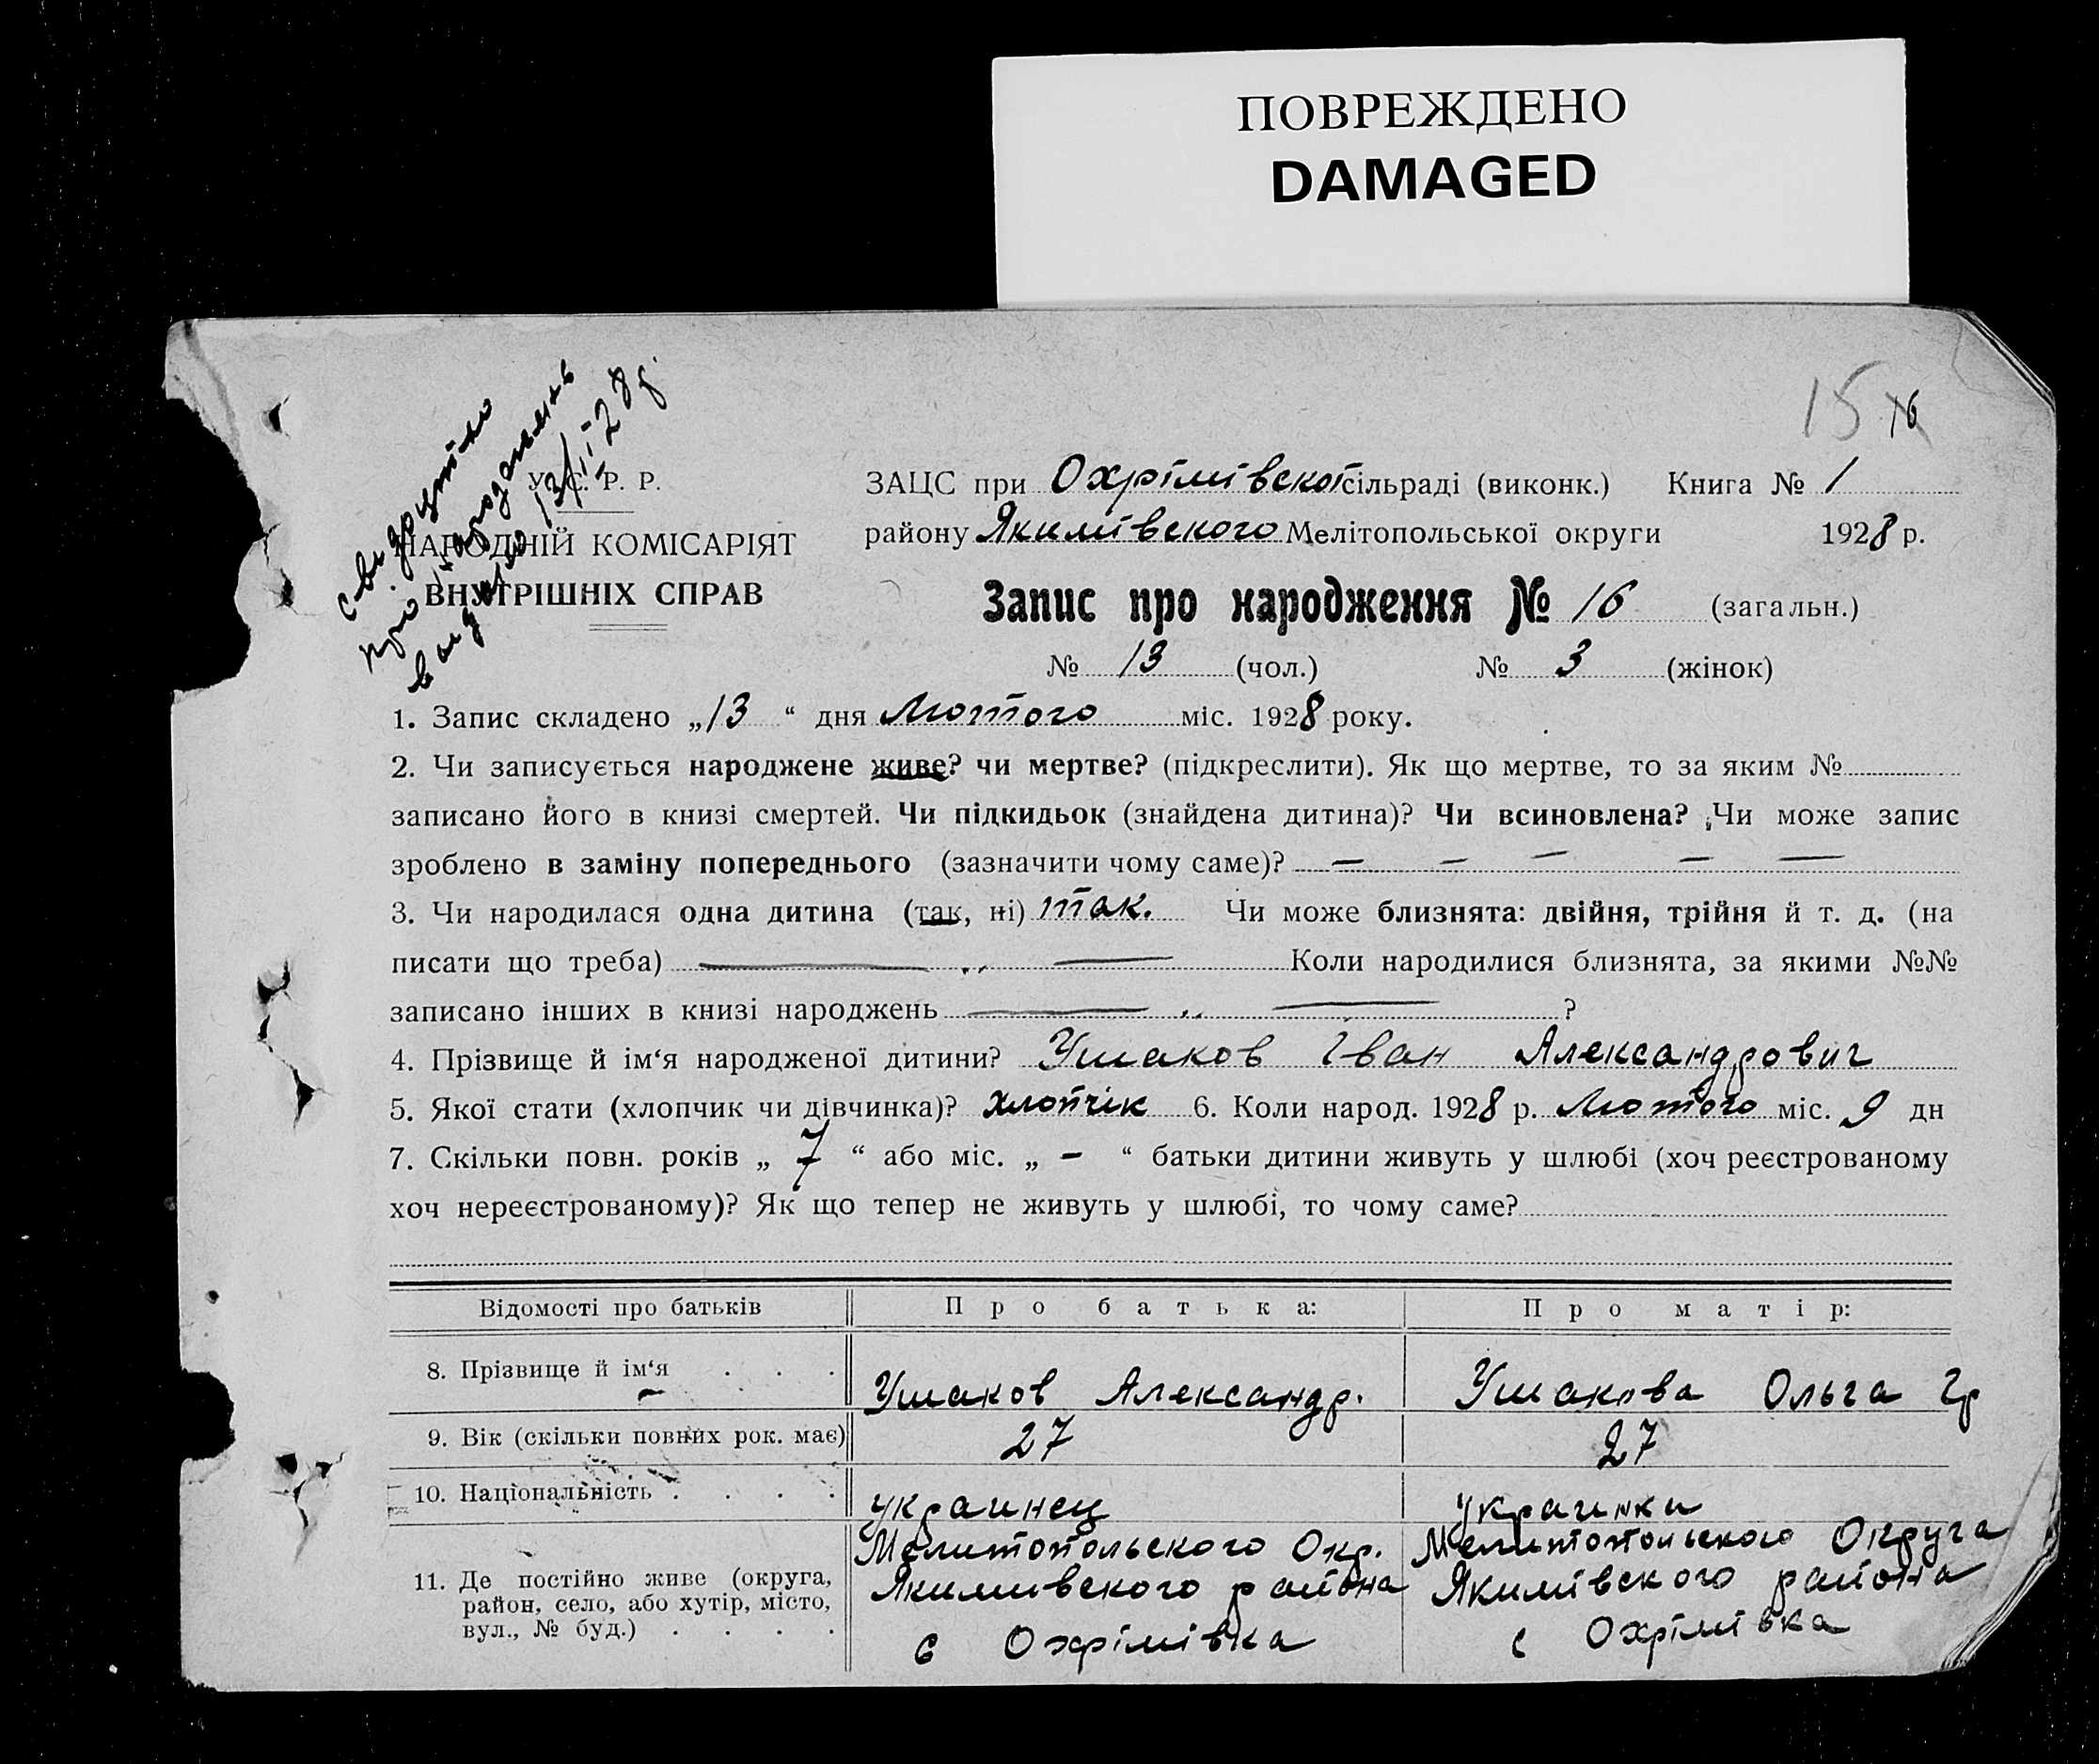 ПОВРЕЖДЕНО
DAMAGED
15 16
свидоцтво
про народження
видано 13/II 28 р.
У. С. Р. Р.
НАРОДНІЙ КОМІСАРІЯТ
ВНУТРІШНІХ СПРАВ
ЗАЦС при Охрімівскоі сільраді (виконк.) Книга № 1
району Якимівского Мелітопольської округи 1928 р.
Запис про народження № 16 (загальн.)
№ 13 (чол.) № 3 (жінок)
1. Запис складено „13 “ дня Лютого міс. 1928 року.
2. Чи записується народжене живе? чи мертве? (підкреслити). Як що мертве, то за яким №
записано його в книзі смертей. Чи підкидьок (знайдена дитина)? Чи всиновлена? Чи може запис
зроблено в заміну попереднього (зазначити чому саме)? — — — — —
3. Чи народилася одна дитина (так, ні) так. Чи може близнята: двійня, трійня й т. д. (на
писати що треба) — „ — Коли народилися близнята, за якими №№
записано інших в книзі народжень — „ — ?
4. Прізвище й ім‘я народженої дитини? Ушаков Іван Александрович
5. Якої стати (хлопчик чи дівчинка)? хлопчік 6. Коли народ. 1928 р. Лютого міс. 9 дн
7. Скільки повн. років „ 7 “ або міс. „ - “ батьки дитини живуть у шлюбі (хоч реєстрованому
хоч нереєстрованому)? Як що тепер не живуть у шлюбі, то чому саме?
Відомості про батьків Про батька: Про матір:
8. Прізвище й ім‘я . . . Ушаков Александр. Ушакова Ольга Гр
9. Вік (скільки повних рок. має) 27 27
10. Національність . . . . украинец украинки
11. Де постійно живе (округа, район, село, або хутір, місто, вул., № буд.) . . . .
Мелитопольского Окр. Мелитопольского Округа
Якимивского района Якимівского района
с Охрімівка с Охрімівка